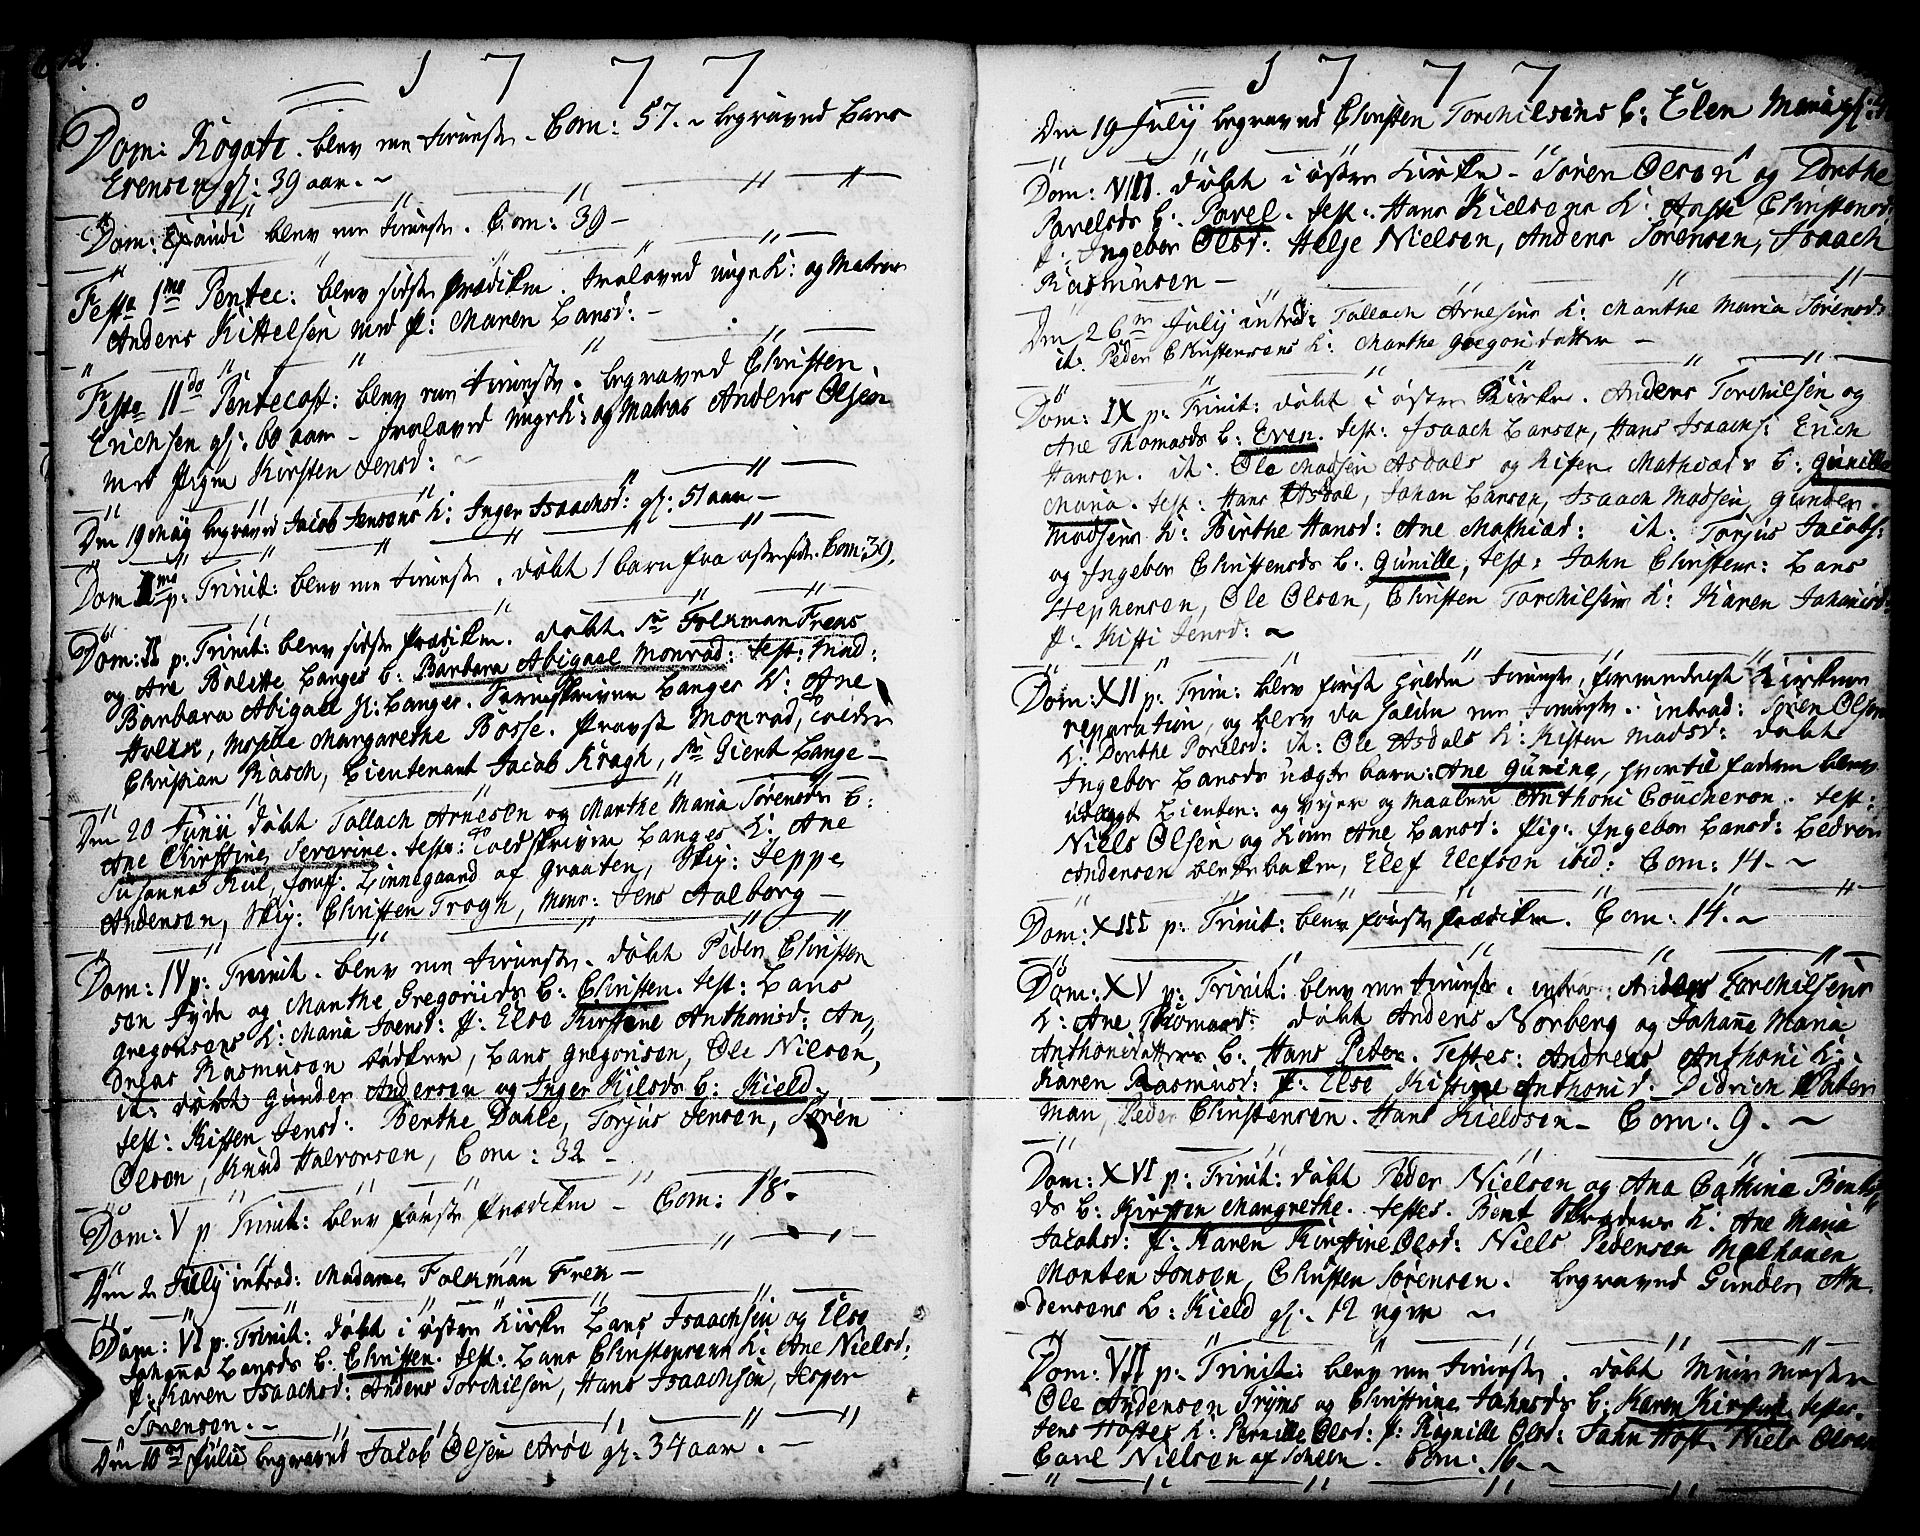 1777
Dom: Rogate. blev ren tieneste. Com: 57. begraved Lars
Erensen gl: 39 aar.
Dom: Exaudi blev ren tieneste. Com: 39
Festo 1mo Pentec: blev sidste prædiken. trolaved unge K: og Matros
Anders Kittelsen med P: Maren Larsd:
Festo IIdo Pentecost: blev ren tieneste. begraved Christen
Erichsen gl: 60 aar. trolaved unge K: og Matros Anders Olsen
med Pigen Kirsten Jensd:
Den 19 Maÿ begraved Jacob Jensens K: Inger Isaachsd: gl: 51 aar
Dom 1mo p: Trinit: blev ren tieneste. døbt 1 barn fra østre Com: 39.
Dom: II p: Trinit: blev sidste prædiken. døbt Sr Folkman Frens
og Ane Bolette Langes b: Barbara Abigael Monrad: test: Mad:
Barbara Abigael Langes. Sorenskriver Langes K: Ane
Holck, Mosslle Margarethe Bosse. Provst Monrad, Tolder
Christian Rasch, Lieutenant Jacob Kragh, Sr Gient Lange
Den 20 Junii døbt Tallach Arnesen og Marthe Maria Sørensds b:
Ane Kirstine Severine. test: Toldskriver Langes K: Ane
Susanna Kiil, Jomf: Linnegaard af Graaten, Skip: Jeppe
Andersen, Skip: Christen Trogh, Mons: Jens Aalborg
Dom: IV p: Trinit. blev ren tieneste. døbt Peder Christen
sen Fyde og Marthe Gregoriids b: Christen. test: Lars
Gregorisens K: Maria Joensd: P: Else Kirstine Anthonisd: An
dreas Rasmusen bødker, Lars Gregorisen, Ole Nilsen,
it: døbt Gunder Andersen og Inger Kilsds b: Kield.
test: Kisten Jensd: Berthe Dahle, Torjus Jensen, Søren
Olsen, Knud Halvorsen, Com: 32
Dom: V p Trinit: blev første prædiken Com: 18.
Den 2 July introd: Madame Folkman Fren
Dom: VI p: Trinit: døbt i østre Kirke Lars Isaachsen og Else
Johanna Larsds b: Christen. test: Lars Christensens K: Ane Nielsd:
P: Karen Isaachsd: Anders Torchilsen, Hans Isaachsen, Jesper
Sørensen.
Den 10de Julii begraved Jacob Olsen Arøe gl: 34 aar.
1777
Den 19 July begraved Christen Torchilsens b: Elen Maria gl:
Dom: VIII. døbt i østre Kirke Søren Olsen og Dorthe
Pavelsds b: Pavel. test: Hans Kielsens K: Aaste Christensd:
P: Ingebor Olsd: Helje Nielsen, Anders Sørensen, Isaach
Rasmusen
Den 26 July introd: Tallach Arnesens K: Marthe Maria Sørensd:
it: Peder Christensens K: Marthe Gregoridatter
Dom: IX p: Trinit: døbt i østre Kirke. Anders Torchilsen og
Ane Thomasds b: Even. test: Isaach Larsen, Hans Isaachs: Erich
Hansen. it: Ole Madsen Asdals og Kisten Mathiæds b: Gunille
Maria. test: Hans Asdal, Johan Larsen, Isaach Madsen, Gunder
Madsens K: Birthe Hansd: Ane Mathiæd: it: Torjus Jacobs:
og Ingebor Christensds b: Gunille, test: John Christens: Lars
Stephensen, Ole Olsen, Christen Torchilsens K: Karen Johanisd:
P: Kisti Jensd:
Dom: XII p: Trin: blev først holden tieneste, formedelst Kirkens
reparation, og blev da holden ren tieneste. introd: Søren Olsens
K: Dorthe Povelsd: it: Ole Asdals K: Kisten Madsd: døbt
Ingebor Larsds uægte barn: Ane Gurine, hvortil faderen blev
udlagt Lieuten: og Vyer og Maaler Anthoni Coucheron. test:
Niels Olsen og Kone Ane Larsd: Pig: Ingebor Larsd: Pedren
Andersen Blekebaken, Elef Elefsen ibid: Com: 14.
Dom: XIII p: Trinit: blev første prædiken. Com: 14.
Dom: XV p: Trinit: blev ren tieneste. introd: Anders Torchilsens
K: Ane Thomasd: døbt Anders Norberg og Johane Maria
Anthonidatters b: Hans Peter. Testes: Andreas Anthoni K:
Karen Rasmusd: P: Else Kistine Anthonid: Didrich Pater
man, Peder Christensen. Hans Kieldsen Com: 9.
Dom: XVI p: Trinit: døbt Peder Nielsen og Ana Cathrine Bents
ds b: Kirsten Margrethe. testes. Bent Skræders K: Ane Maria
Jacobsd: P: Karen Kirstine Olsd: Niels Pedersen Molhouen
Morten Jonsen, Christen Sørensen. begraved Gunder An
dersens b: Kield gl: 12 uger
Dom: VII p: Trinit: blev ren tieneste. døbt Muur mester
Ole Andersen Tryms og Christine Johnsds b: Karen Kirstine. testes.
Jens Hoftes K: Pernille Olsd: P: Ragnille Olsd: John Hoft. Niels Olsen
Carl Nielsen af Scheen. Com: 16.